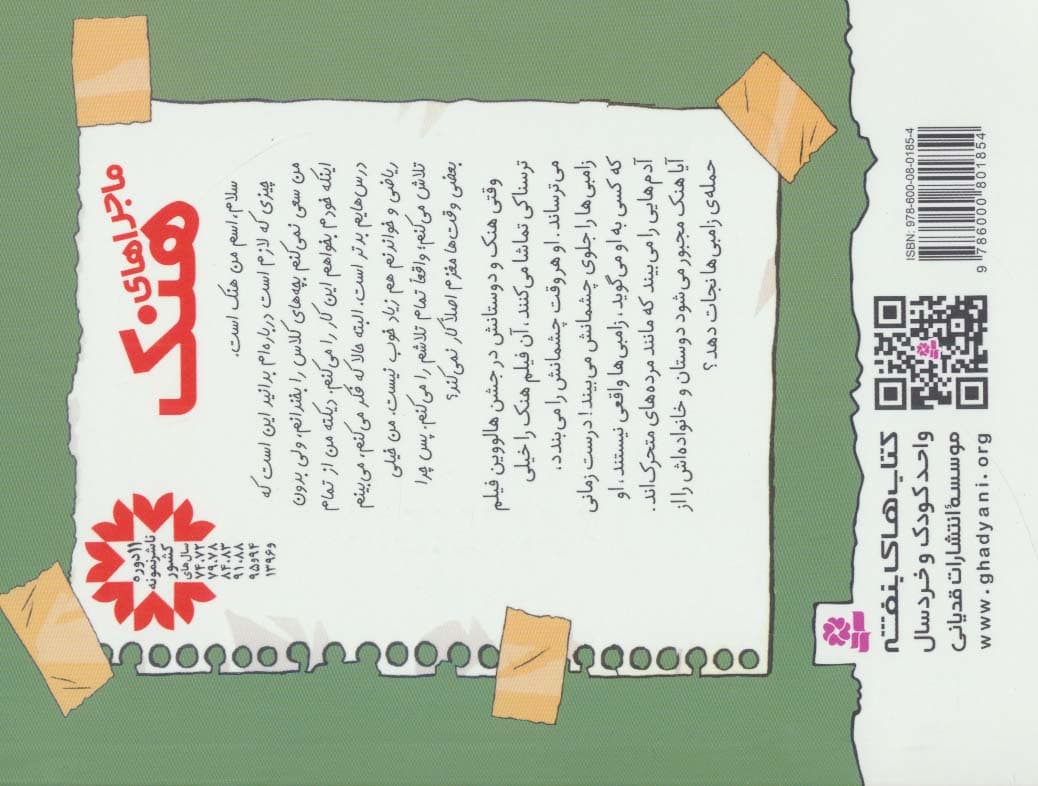 ماجراهای
هنک
سلام، اسم من هنک است.
چیزی که لازم است درباره‌ام بدانید این است که
من سعی نمی‌کنم بچه‌های کلاس را بخندانم، ولی بدون
اینکه خودم بخواهم این کار را می‌کنم. دیکته من از تمام
درس‌هایم بدتر است. البته حالا که فکر می‌کنم، می‌بینم
ریاضی و خواندنم هم زیاد خوب نیست. من خیلی
تلاش می‌کنم؛ واقعاً تمام تلاشم را می‌کنم. پس چرا
بعضی وقت‌ها مغزم اصلاً کار نمی‌کند؟
وقتی هنک و دوستانش در جشن هالووین فیلم
ترسناکی تماشا می‌کنند، آن فیلم هنک را خیلی
می‌ترساند. او هر وقت چشمانش را می‌بندد،
زامبی‌ها را جلوی چشمانش می‌بیند! درست زمانی
که کسی به او می‌گوید، زامبی‌ها واقعی نیستند، او
آدم‌هایی را می‌بیند که مانند مرده‌های متحرک‌اند.
آیا هنک مجبور می‌شود دوستان و خانواده‌اش را از
حمله‌ی زامبی‌ها نجات دهد؟
۱۱ دوره
ناشر نمونه
کشور
سال‌های
۷۴،۷۲
۷۹،۷۸
۸۴،۸۳
۹۱،۸۸
۹۴و۹۵
و۱۳۹۶
ISBN: 978-600-08-0185-4
9 786000 801854
کتاب‌های بنفشه
واحد کودک و خردسال
موسسهٔ انتشارات قدیانی
www.ghadyani.org